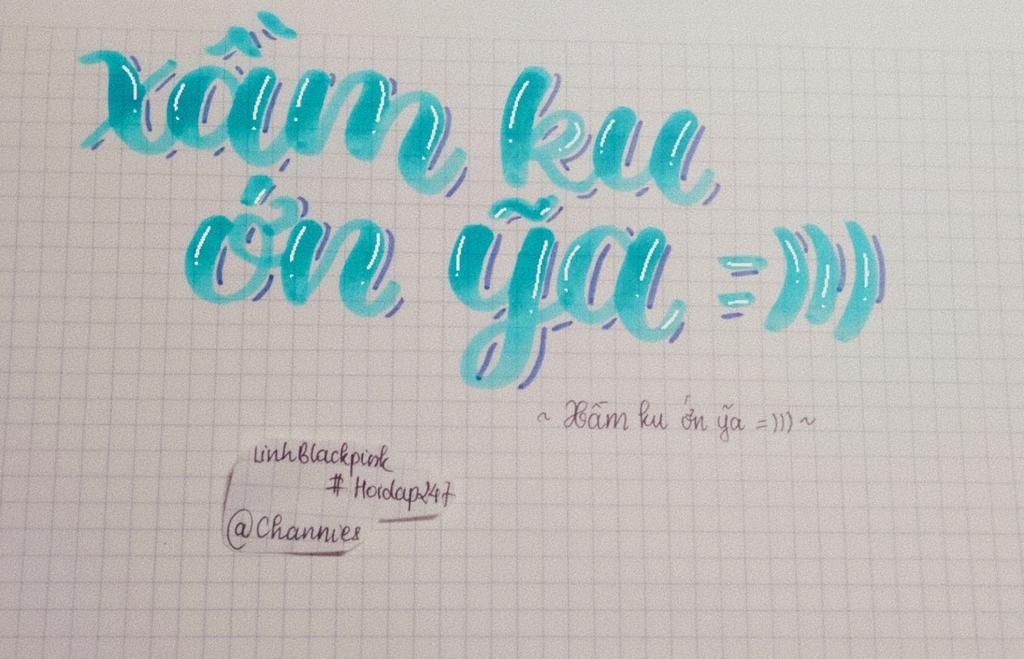 xẫm ku
ớn ỹa =)))
~ Xẫm ku ớn ỹa =))) ~
LinhBlackpink
# Hoidap247
@Channies